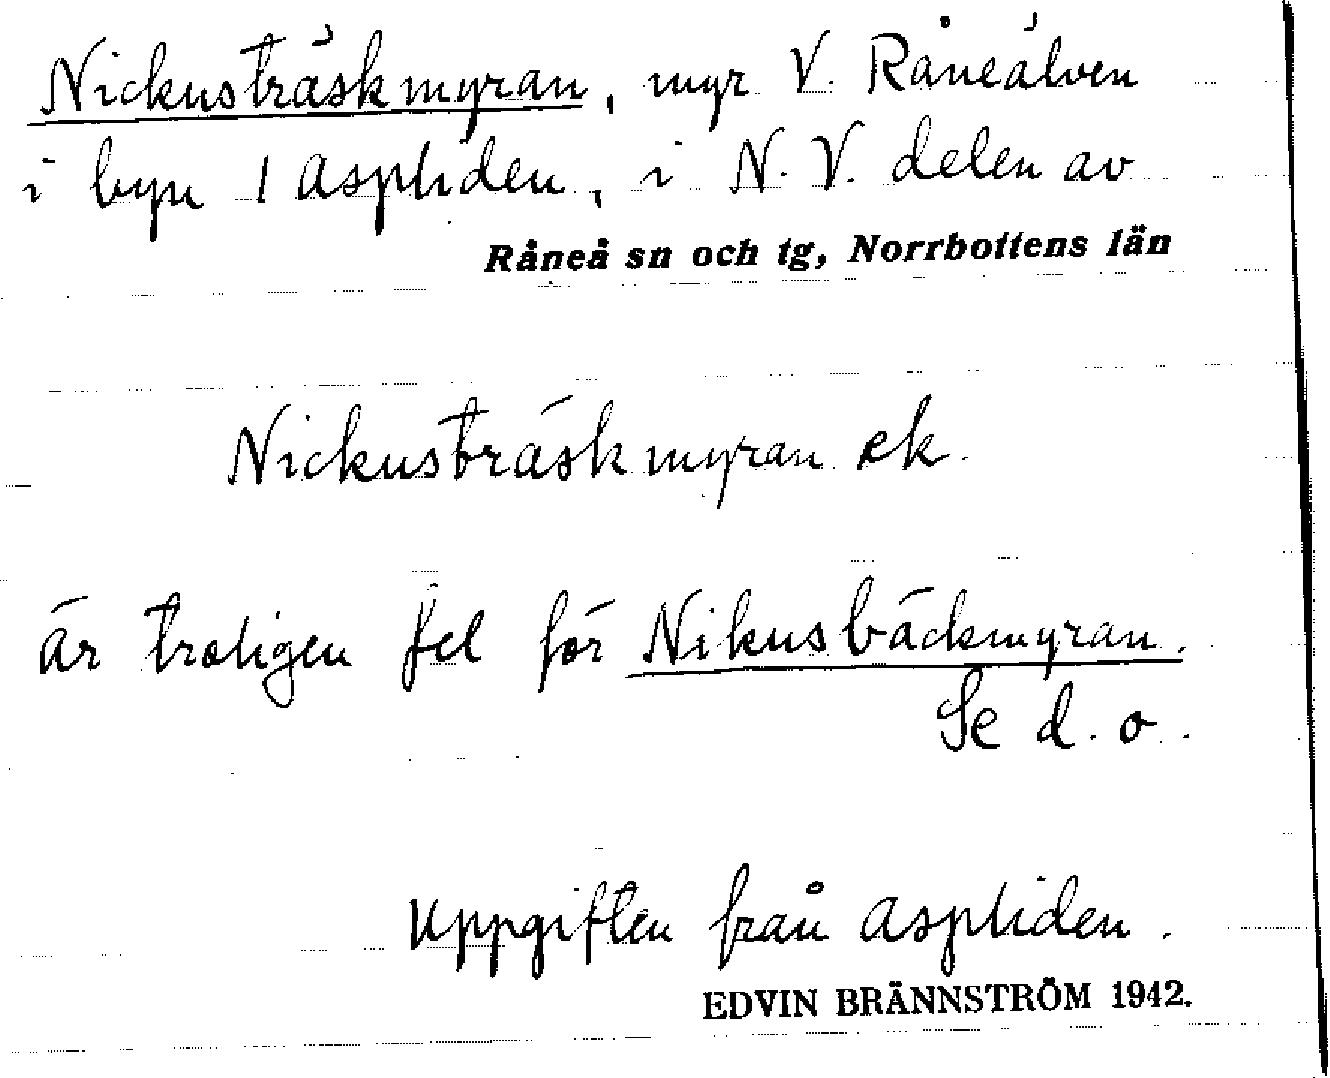 Nickusträskmyran, myr V. Råneälven
i byn 1 Aspliden, i N.V. delen av
Råneå sn och tg, Norrbottens län
Nickusträskmyran ek.
är troligen fel för Nikusbäckmyran.
Se d.o.
Uppgiften från Aspliden.
EDVIN BRÄNNSTRÖM 1942.